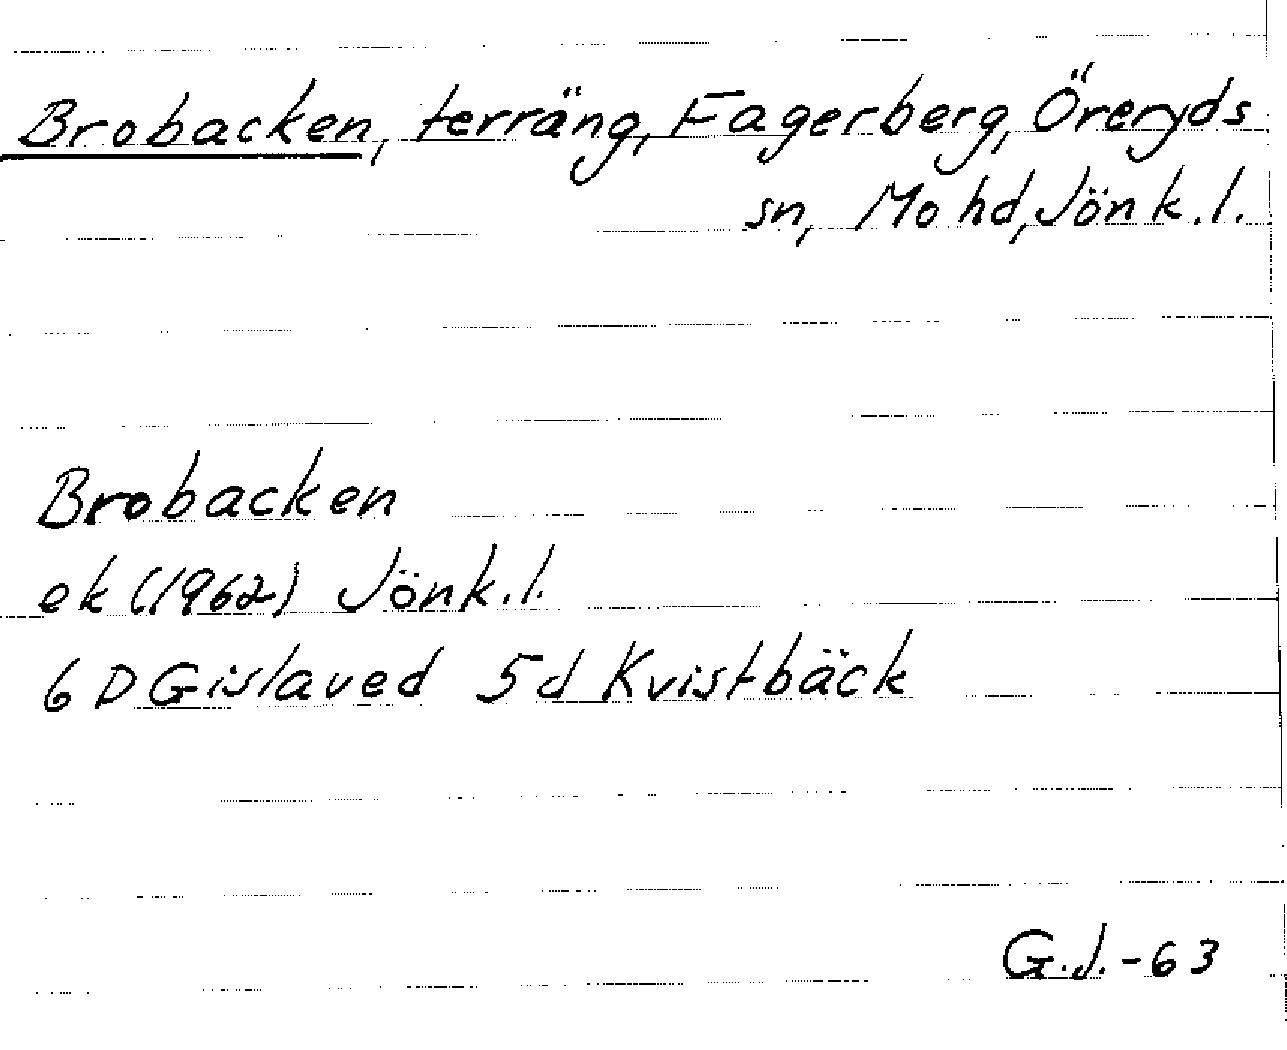 Brobacken, terräng, Fagerberg, Öreryds
sn, Mo hd, Jönk.l.
Brobacken
ek (1962) Jönk.l.
6 D Gislaved 5d Kvistbäck
G.J.-63